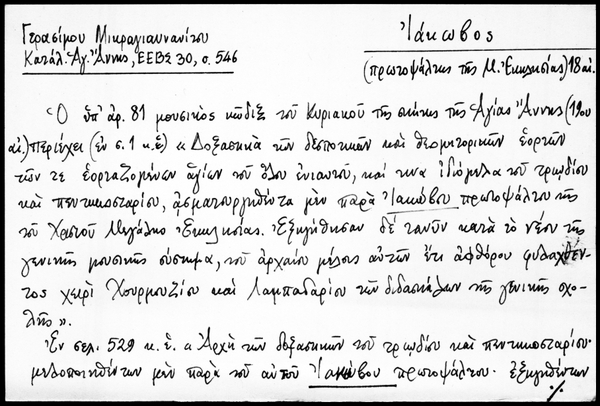 Γερασίμου Μικραγιαννανίτου
Κατάλ. Ἁγ. Ἄννης, ΕΕΒΣ 30, σ. 546
Ἰάκωβος
(πρωτοψάλτης τῆς Μ. Ἐκκλησίας) 18 αἰ.
Ὁ ὑπ' ἀρ. 81 μουσικὸς κῶδιξ τοῦ Κυριακοῦ τῆς σκήτης τῆς Ἁγίας Ἄννης (19ου
αἰ.) περιέχει (ἐν σ. 1 κ. ἑ.) « Δοξαστικὰ τῶν δεσποτικῶν καὶ θεομητορικῶν ἑορτῶν
τῶν τε ἑορταζομένων ἁγίων τοῦ ὅλου ἐνιαυτοῦ, καί τινα ἰδιόμελα τοῦ τριῳδίου
καὶ πεντηκοσταρίου, ᾀσματουργηθέντα μὲν παρὰ Ἰακώβου πρωτοψάλτου τῆς
τοῦ Χριστοῦ Μεγάλης Ἐκκλησίας. Ἐξηγήθησαν δὲ τανῦν κατὰ τὸ νέον τῆς
γενικῆς μουσικῆς σύστημα, τοῦ ἀρχαίου μέλους αὐτῶν ἔτι ἀφθόρου φυλαχθέν-
τος χειρὶ Χουρμουζίου καὶ Λαμπαδαρίου τῶν διδασκάλων τῆς γενικῆς σχο-
λῆς ».
Ἐν σελ. 529 κ. ἑ. « Ἀρχὴ τῶν δοξαστικῶν τοῦ τριῳδίου καὶ πεντηκοσταρίου·
μελοποιηθέντων μὲν παρὰ τοῦ αὐτοῦ Ἰακώβου πρωτοψάλτου· ἐξηγηθέντων
./.